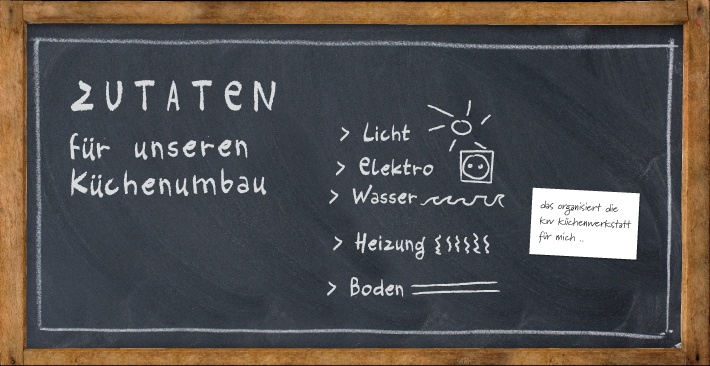 ZUTATEN
für unseren
Küchenumbau
> Licht
> Elektro
> Wasser
> Heizung
> Boden
das organisiert die
KW Küchenwerkstatt
für mich ..